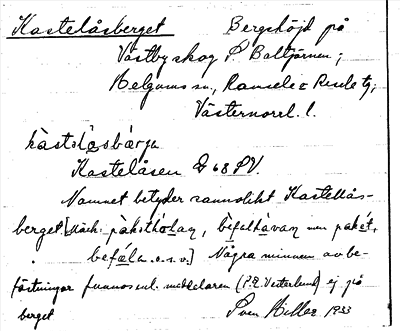 Kastelåsberget Bergshöjd på
Västby skog S Baltjärnen;
Helgums sn, Ramsele o Resele tg,
Västernorrl. l.
kàstəlo̱sbærja
Kastelåsen G 68 SV.
Namnet betyder sannolikt Kastellås-
berget [Märk: pàkəthò̱lan, bèfəlhàvan men pakét,
befä́la o.s.v.] Några minnen av be-
fästningar funnos enl. meddelaren (P.E. Vesterlund) ej på
berget Sven Hillar 1933